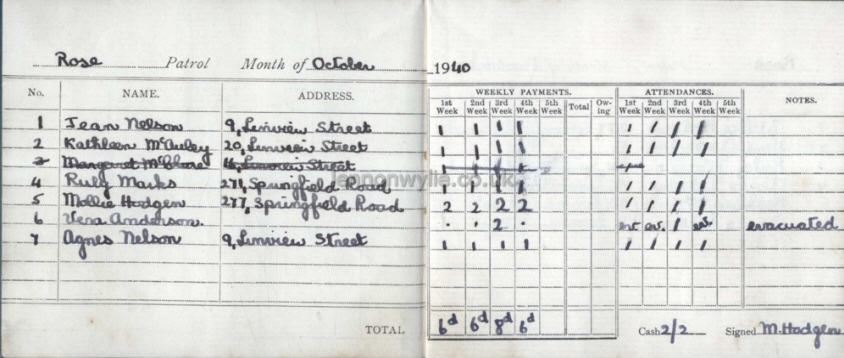 Rose Patrol Month of October 1940
WEEKLY PAYMENTS. ATTENDANCES.
No. NAME. ADDRESS. 1st Week 2nd Week 3rd Week 4th Week 5th Week Total Ow-ing 1st Week 2nd Week 3rd Week 4th Week 5th Week NOTES.
1 Jean Nelson 9, Linview Street 1 1 1 1 / / / /
2 Kathleen McAuley 20, Linview Street 1 1 1 1 / / / /
3 Margaret Linview Street 1
4 Ruby Marks 271, Springfield Road 1 1 1 1 / / / /
5 Mollie Hodgen 277, Springfield Road 2 2 2 2 / / / /
6 Vera Anderson. . . 2 . ev. ev. / ev. evacuated
7 Agnes Nelson 9, Linview Street 1 1 1 1 / / / /
TOTAL 6d 6d 8d 6d Cash 2/2 Signed M. Hodgen